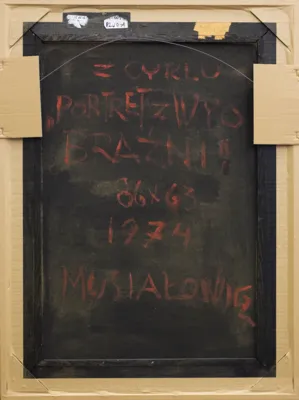 Z CYKLU
„PORTRET Z WYO
BRAŹNI"
86X63
1974
MUSIAŁOWICZ